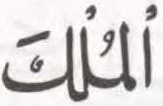 اَلْمُلْكَ